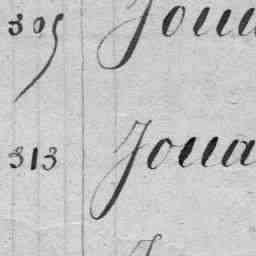 305 Joua
313 Joua